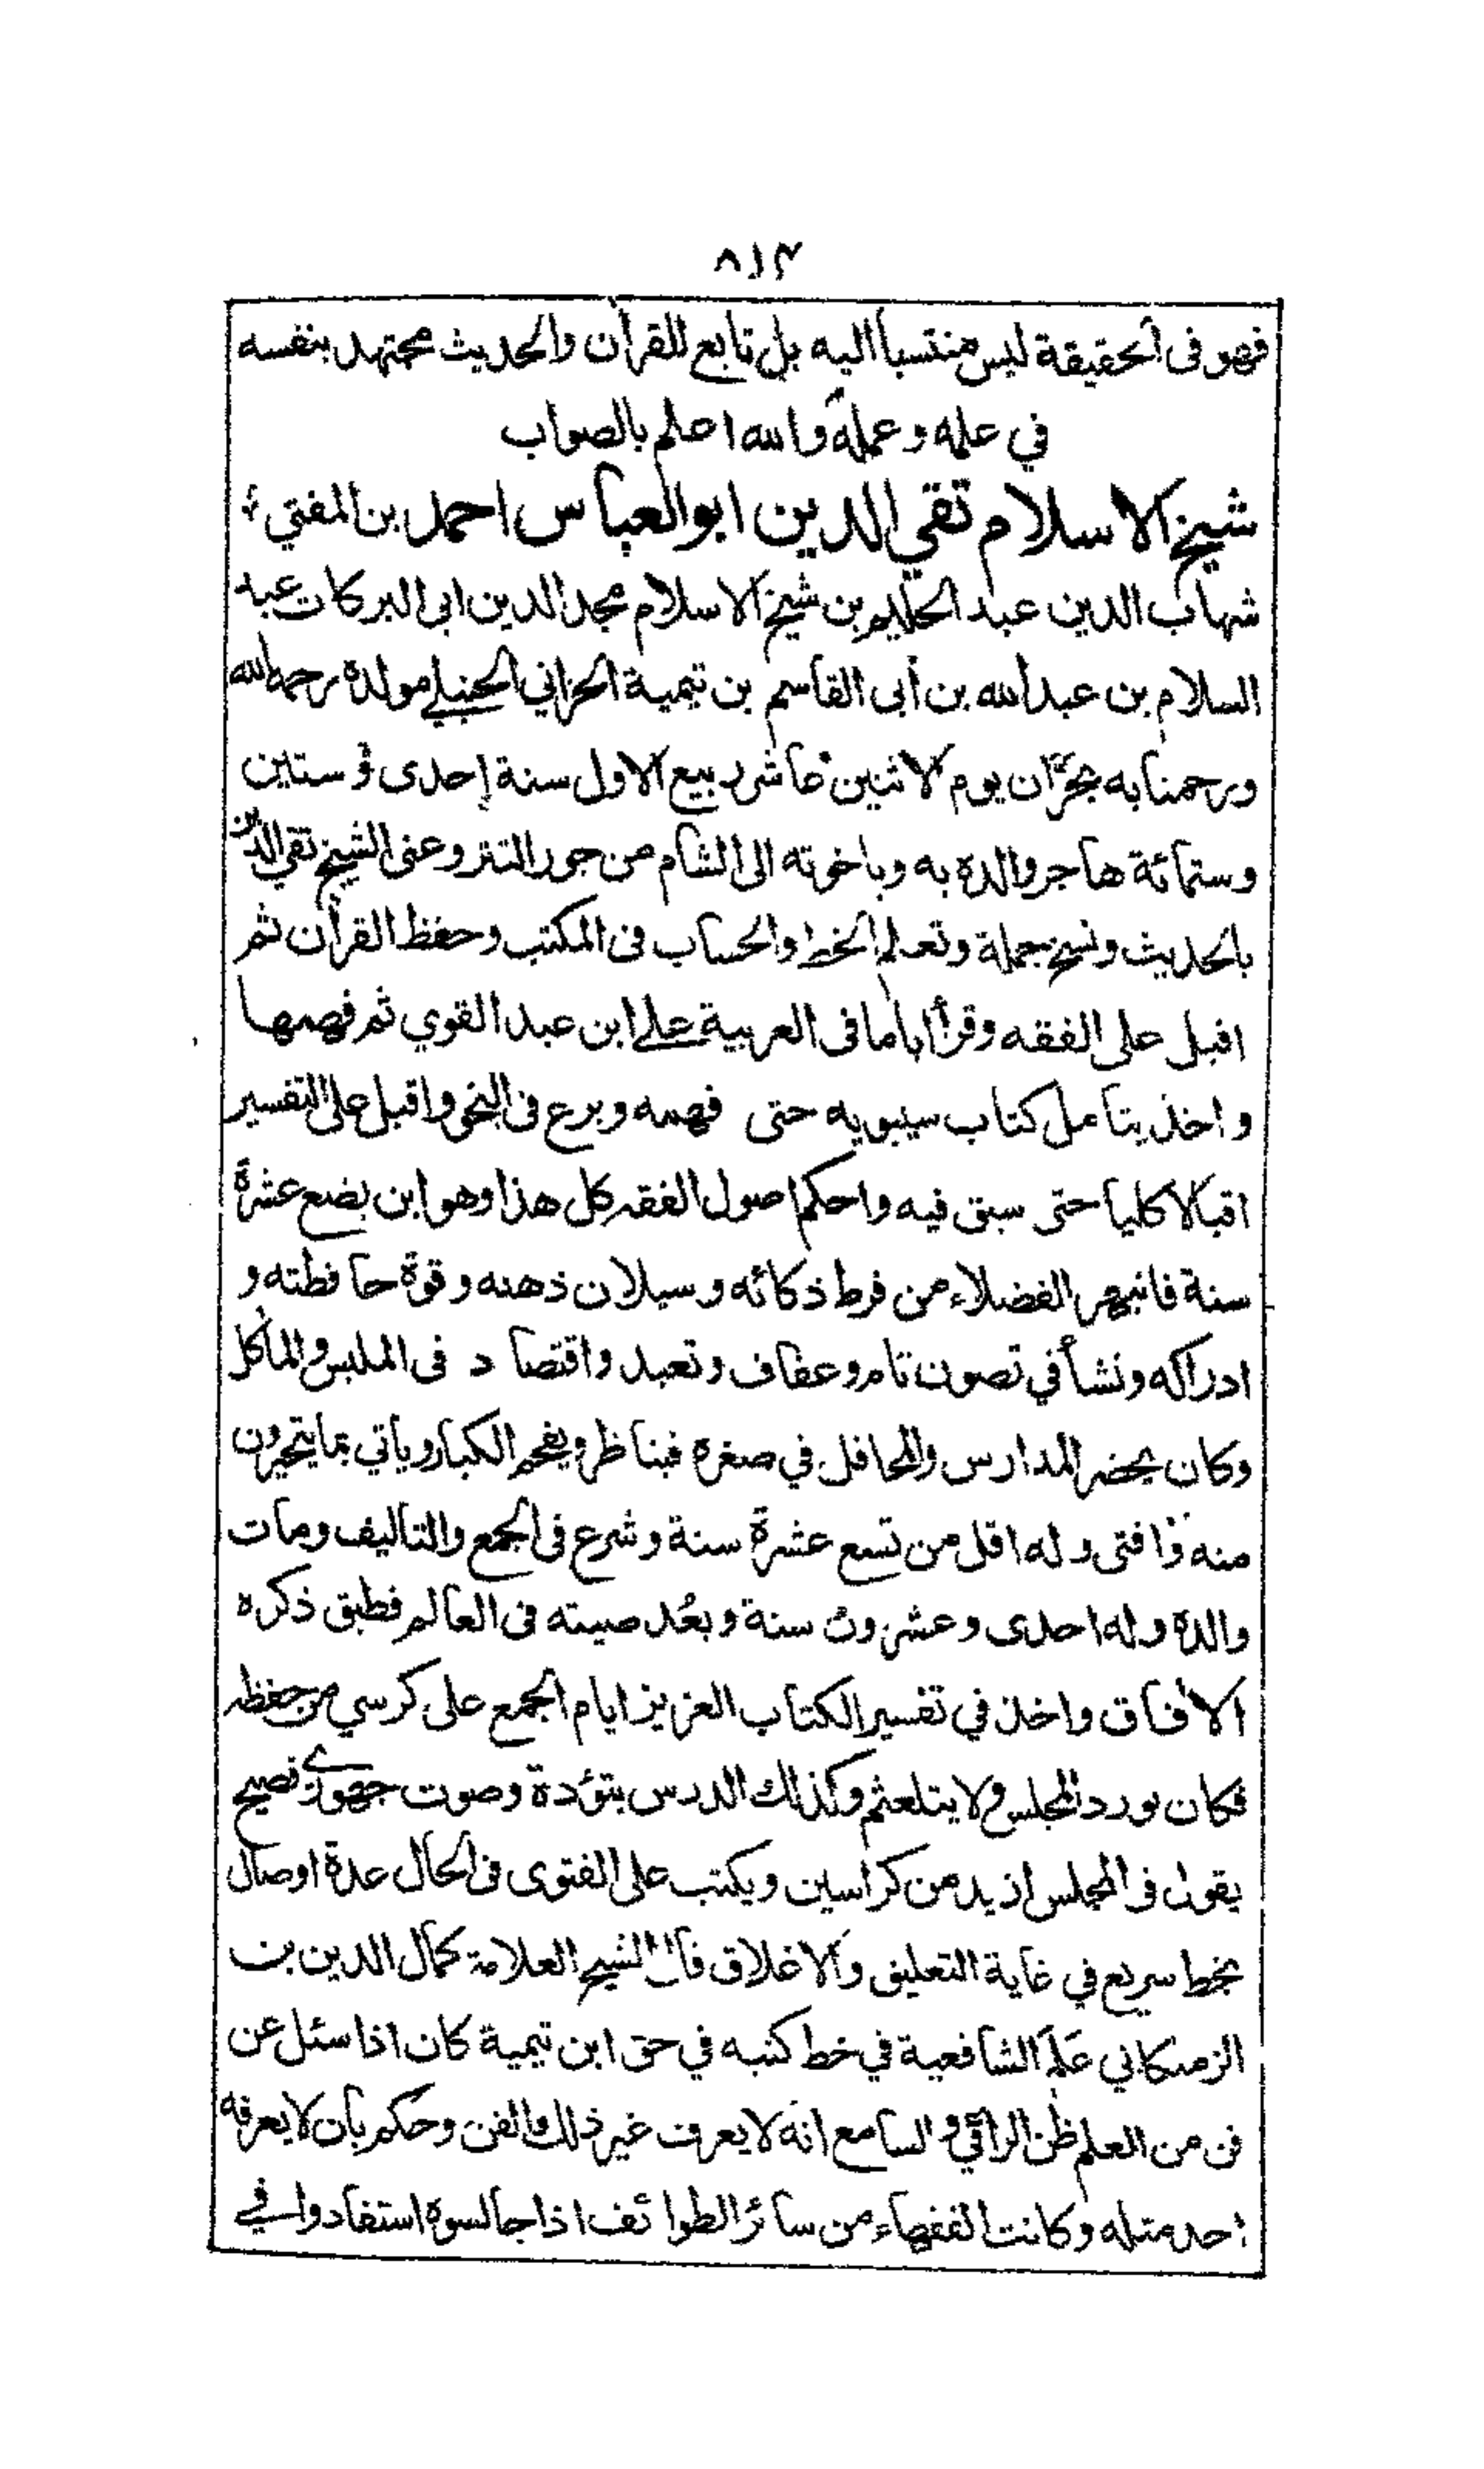 ٨١٣
فهو فى الحقيقة ليس منتسبا اليه بل تابع للقرأن والحديث مجتهد بنفسه
في علمه وعمله والله اعلم بالصواب
شيخ الاسلام تقي الدين ابو العباس احمد بن المفتي
شهاب الدين عبد الحليم بن شيخ الاسلام مجد الدين ابى البركات عبد
السلام بن عبد الله بن أبى القاسم بن تيمية الحراني الحنبلي مولده رحمه الله
ورحمنا به بحرّان يوم الاثنين عاشر ربيع الاول سنة إحدى و ستين
وستمائة هاجر والده به وباخوته الى الشام من جور التتر وعنى الشيخ تقي الدين
بالحديث ونسخ جملة وتعلم الخط والحساب فى المكتب وحفظ القرأن ثم
اقبل على الفقه وقرأ اياما فى العربية على ابن عبد القوي ثم فهمها
واخذ يتأمل كتاب سيبويه حتى فهمه وبرع فى النحو واقبل على التفسير
اقبالا كليا حتى سبق فيه واحكم اصول الفقه كل هذا وهو ابن بضع عشرة
سنة فانبهر الفضلاء من فرط ذكائه وسيلان ذهنه وقوة حافظته و
ادراكه ونشأ في تصون تام وعفاف وتعبد واقتصاد فى الملبس والمأكل
وكان يحضر المدارس والمحافل في صغره فيناظر ويفحم الكبار وياتي بما يتحيرون
منه وافتى وله اقل من تسع عشرة سنة وشرع فى الجمع والتاليف ومات
والده وله احدى وعشرون سنة وبعُد صيته فى العالم فطبق ذكره
الأفاق واخذ في تفسير الكتاب العزيز ايام الجمع على كرسي من حفظه
فكان يورد المجلس ولا يتلعثم وكذلك الدرس بتؤدة وصوت جهوري فصيح
يقول فى المجلس ازيد من كراسين ويكتب على الفتوى فى الحال عدة اوصال
بخط سريع في غاية التعليق والاغلاق قال الشيخ العلامة كمال الدين بن
الزملكاني علم الشافعية في خط كتبه في حق ابن تيمية كان اذا سئل عن
فن من العلم ظن الرائي والسامع انه لا يعرف غير ذلك الفن وحكم بأن لا يعرفه
احد مثله وكانت الفقهاء من سائر الطوائف اذا جالسوه استفادوا في